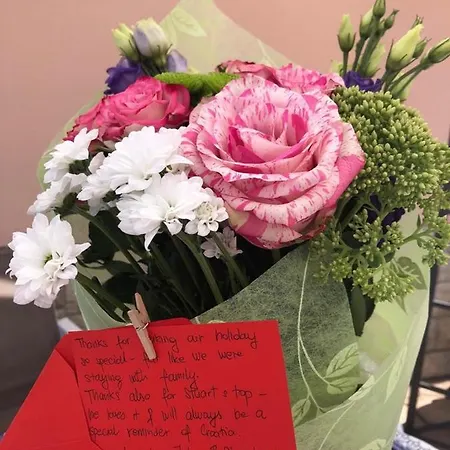 Thanks for making our holiday
so special - felt like we were
staying with family.
Thanks also for Stuart's top -
he loves it & will always be a
special reminder of Croatia